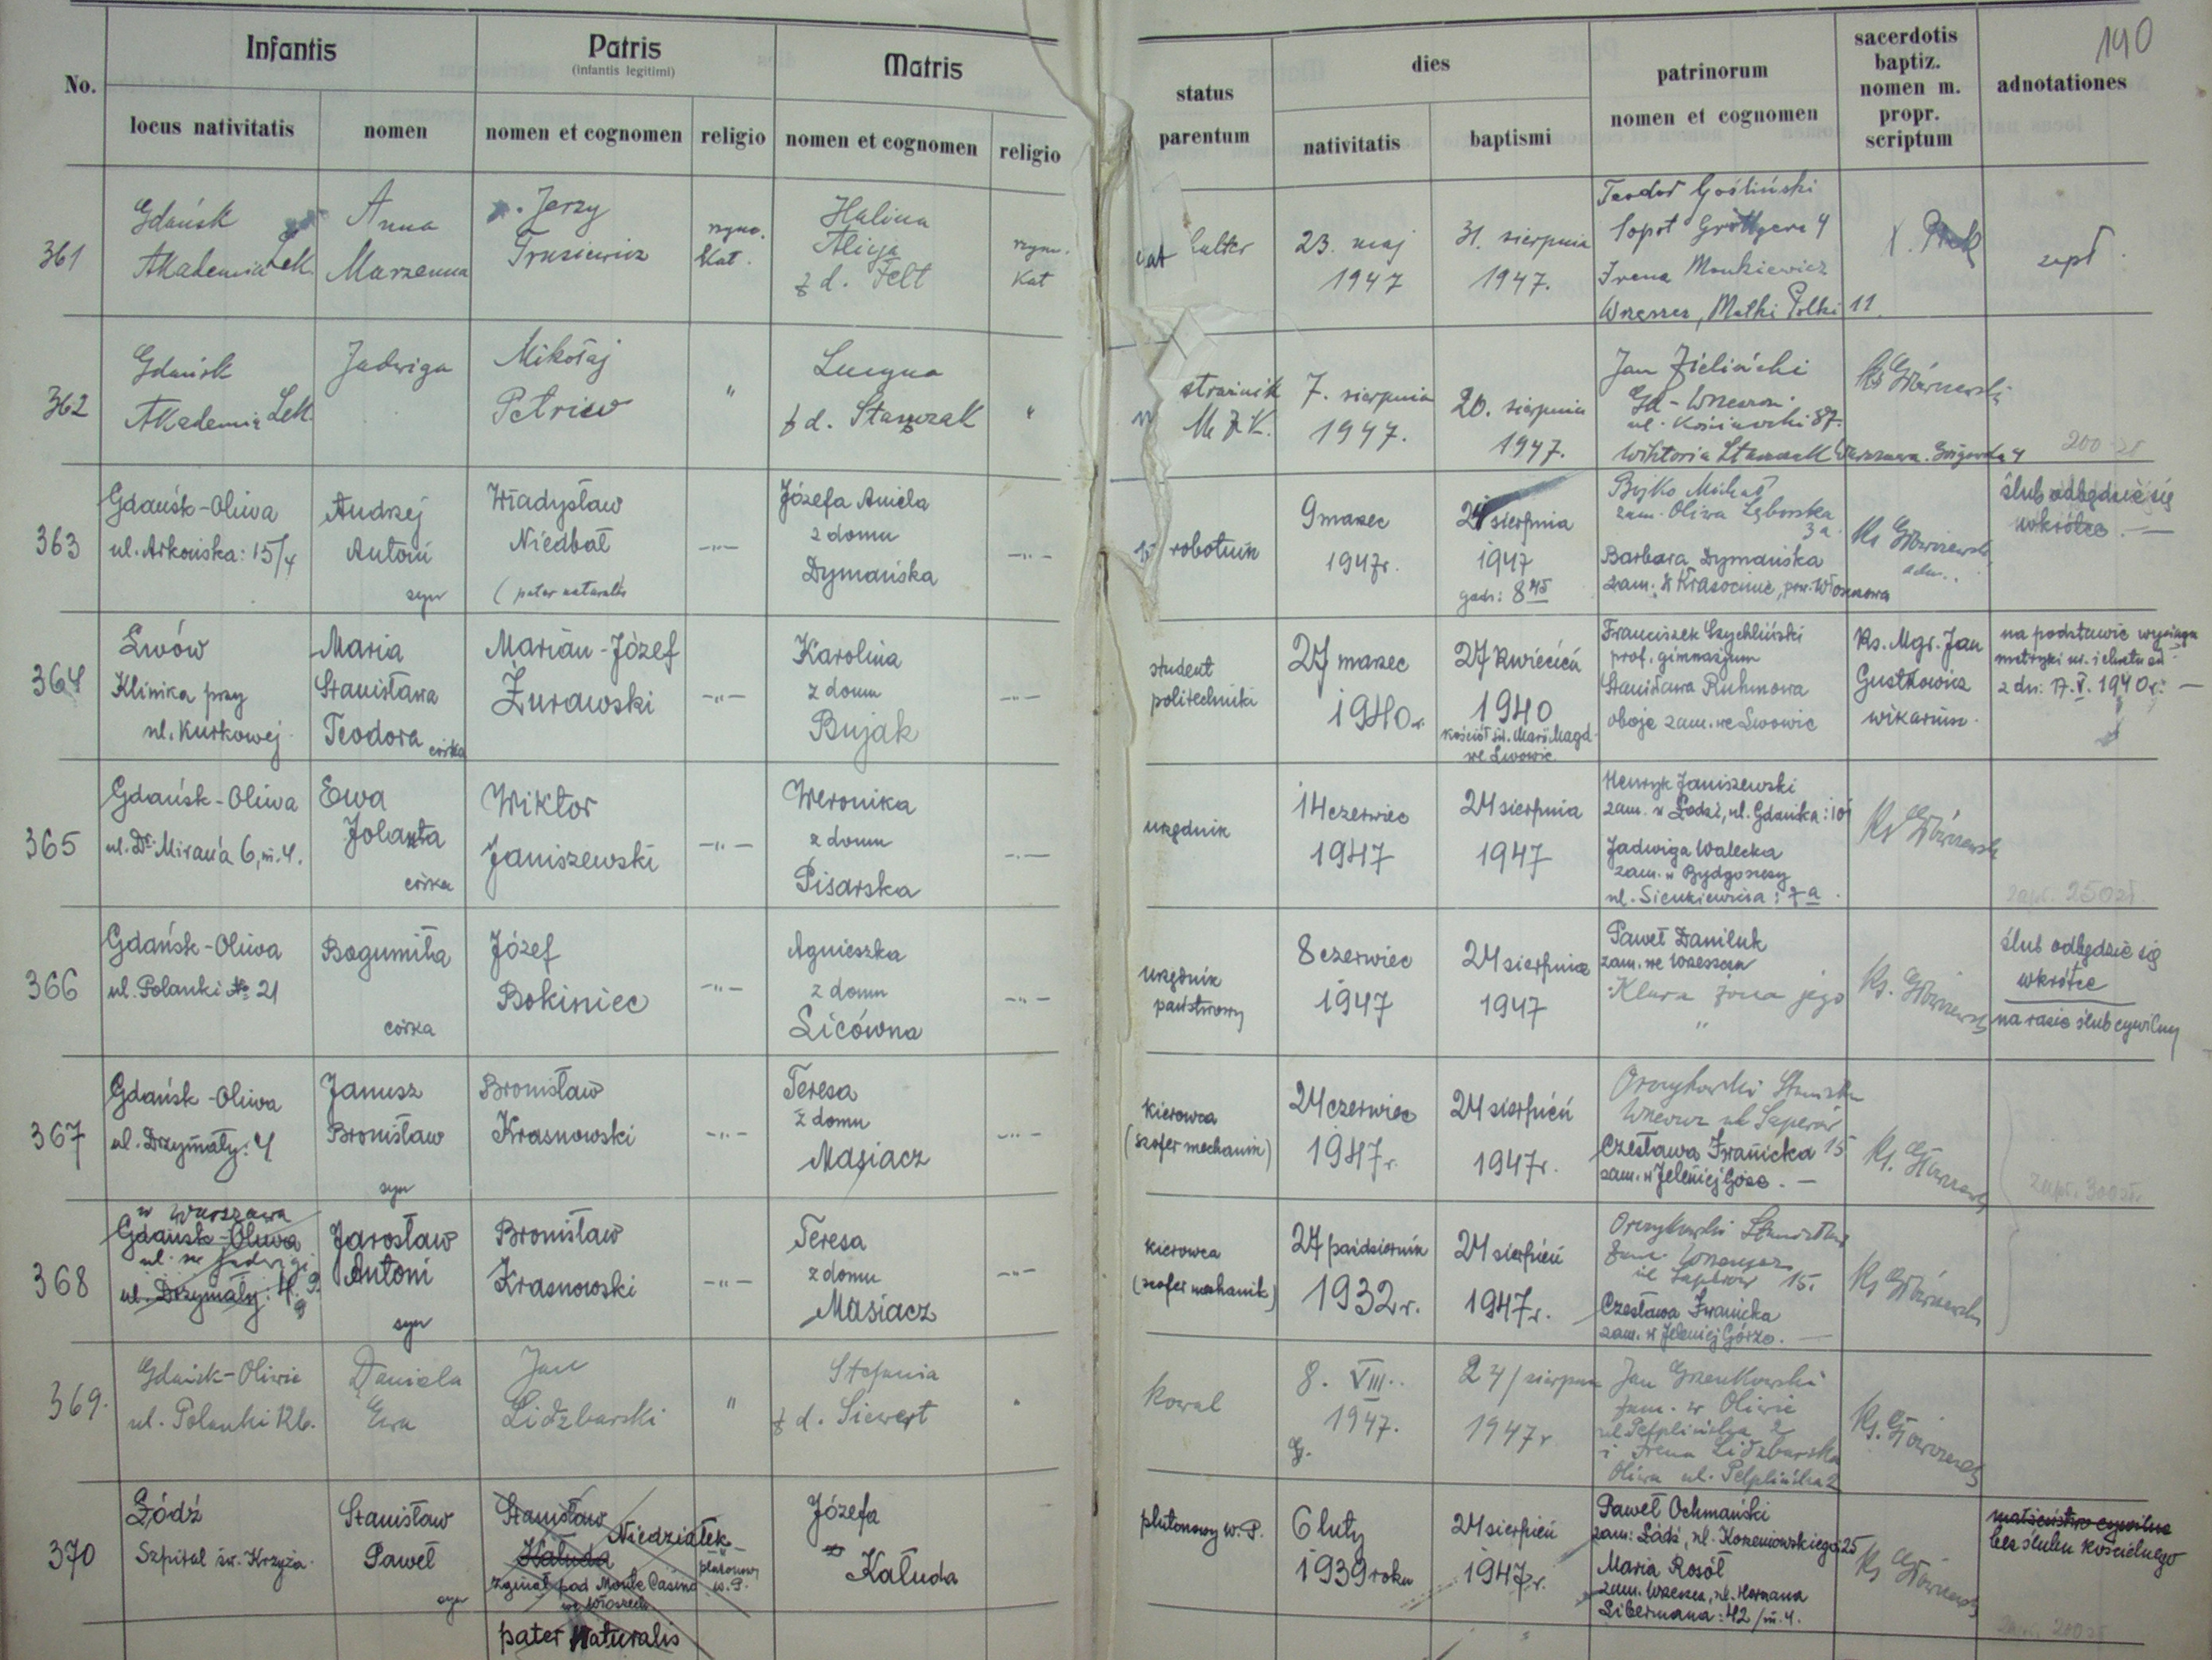 140
No.
Infantis
locus nativitatis
nomen
Patris
(infantis legitimi)
nomen et cognomen
religio
Matris
nomen et cognomen
religio
status
parentum
dies
nativitatis
baptismi
patrinorum
nomen et cognomen
sacerdotis
baptiz.
nomen m.
propr.
scriptum
adnotationes
361
Gdańsk
Akademia Lek.
Anna
Marzenna
Jerzy
rzym.
Kat.
Halina
Alicja
z d. Felt
rzym.
Kat
23. maj
1947
31. sierpnia
1947.
Teodor Gośliński
Sopot Grottgera 4
Irena Monkiewicz
Wrzeszcz, Matki Polki 11.
zapł.
362
Gdańsk
Akademia Lek.
Jadwiga
Mikołaj
Petriew
"
Lucyna
z d. Stawczak
"
strażnik
M.Z.K.
7. sierpnia
1947.
20. sierpnia
1947.
Jan Zieliński
Gd-Wrzeszcz
ul. 87.
Wiktoria Warszawa 4
200 zł
363
Gdańsk-Oliwa
ul. Arkońska: 15/4
Andrzej
Antoni
syn
Władysław
Niedbał
(pater naturalis
-"-
Józefa Aniela
z domu
Dymańska
-"-
robotnik
9 marzec
1947r.
24 sierpnia
1947
godz: 8 45
Bojko Michał
zam. Oliwa Lęborska
3a
Barbara Dymańska
zam: w Krasocinie, pow. Włoszczowa
ślub odbędzie się
wkrótce. —
364
Lwów
Klinika przy
ul. Kurkowej
Maria
Stanisława
Teodora córka
Marian-Józef
Żurawski
-"-
Karolina
z domu
Bujak
-"-
student
politechniki
27 marzec
1940r.
27 kwiecień
1940
kościół św. Marii Magd.
we Lwowie.
Franciszek Czychliński
prof. gimnazjum
Stanisława Ruhmowa
oboje zam. we Lwowie
Ks. Mgr. Jan
Gustkowicz
wikariusz.
na podstawie wyciągu
metryki ur. i chrztu
z dn: 17.V.1940r: —
365
Gdańsk-Oliwa
ul. Dr. Mirau'a 6, m. 4.
Ewa
Jolanta
córka
Wiktor
Janiszewski
-"-
Weronika
z domu
Pisarska
-"-
urzędnik
14 czerwiec
1947
24 sierpnia
1947
Henryk Janiszewski
zam. w Łodzi, ul. Gdańska: 101
Jadwiga Walecka
zam. w Bydgoszczy
ul. Sienkiewicza: 7a.
zapł. 250 zł.
366
Gdańsk-Oliwa
ul. Polanki No 21
Bogumiła
córka
Józef
Bokiniec
-"-
Agnieszka
z domu
Licówna
-"-
urzędnik
państwowy
8 czerwiec
1947
24 sierpnia
1947
Paweł Daniluk
zam. we Wrzeszczu
Klara żona jego
"
ślub odbędzie się
wkrótce
na razie ślub cywilny
367
Gdańsk-Oliwa
ul. Drzymały: 4
Janusz
Bronisław
syn
Bronisław
Krasnowski
-"-
Teresa
z domu
Masiacz
-"-
kierowca
(szofer mechanik)
24 czerwiec
1947r.
24 sierpień
1947r.
Wrzeszcz ul. Saperów
15
Czesława Iwanicka
zam. w Jeleniej Górze. —
zapł. 300 zł.
368
w Warszawa
Gdańsk-Oliwa
ul. św Jadwigi
ul. Drzymały: 4. 9
Jarosław
Antoni
syn
Bronisław
Krasnowski
-"-
Teresa
z domu
Masiacz
-"-
kierowca
(szofer mechanik)
27 październik
1932r.
24 sierpień
1947r.
zam. Wrzeszcz
ul. Saperów 15.
Czesława Iwanicka
zam. w Jeleniej Górze. —
369.
Gdańsk-Oliwie
ul. Polanki 126.
Daniela
Ewa
Jan
Lidzbarski
"
Stefania
z d. Siewert
"
kowal
8. VIII.
1947.
24/sierpnia
1947r
Jan Grenkowski
zam. w Oliwie
ul. Pelplińska 2
i Irena Lidzbarska
Oliwa ul. Pelplińska 2
370
Łódź
Szpital św. Krzyża.
Stanisław
Paweł
syn
Stanisław
Niedziałek
Kałuda
zginął pod Monte Casino
we Włoszech
plutonowy
w.P.
pater naturalis
Józefa
Kałuda
plutonowy W.P.
6 luty
1939 roku
24 sierpień
1947r.
Paweł Ochmański
zam: Łódź, ul. Korzeniowskiego: 25
Maria Rosół
zam. Wrzeszcz, ul. Hermana
Libermana: 42/m. 4.
małżeństwo cywilne
bez ślubu kościelnego
zapł. 200 zł